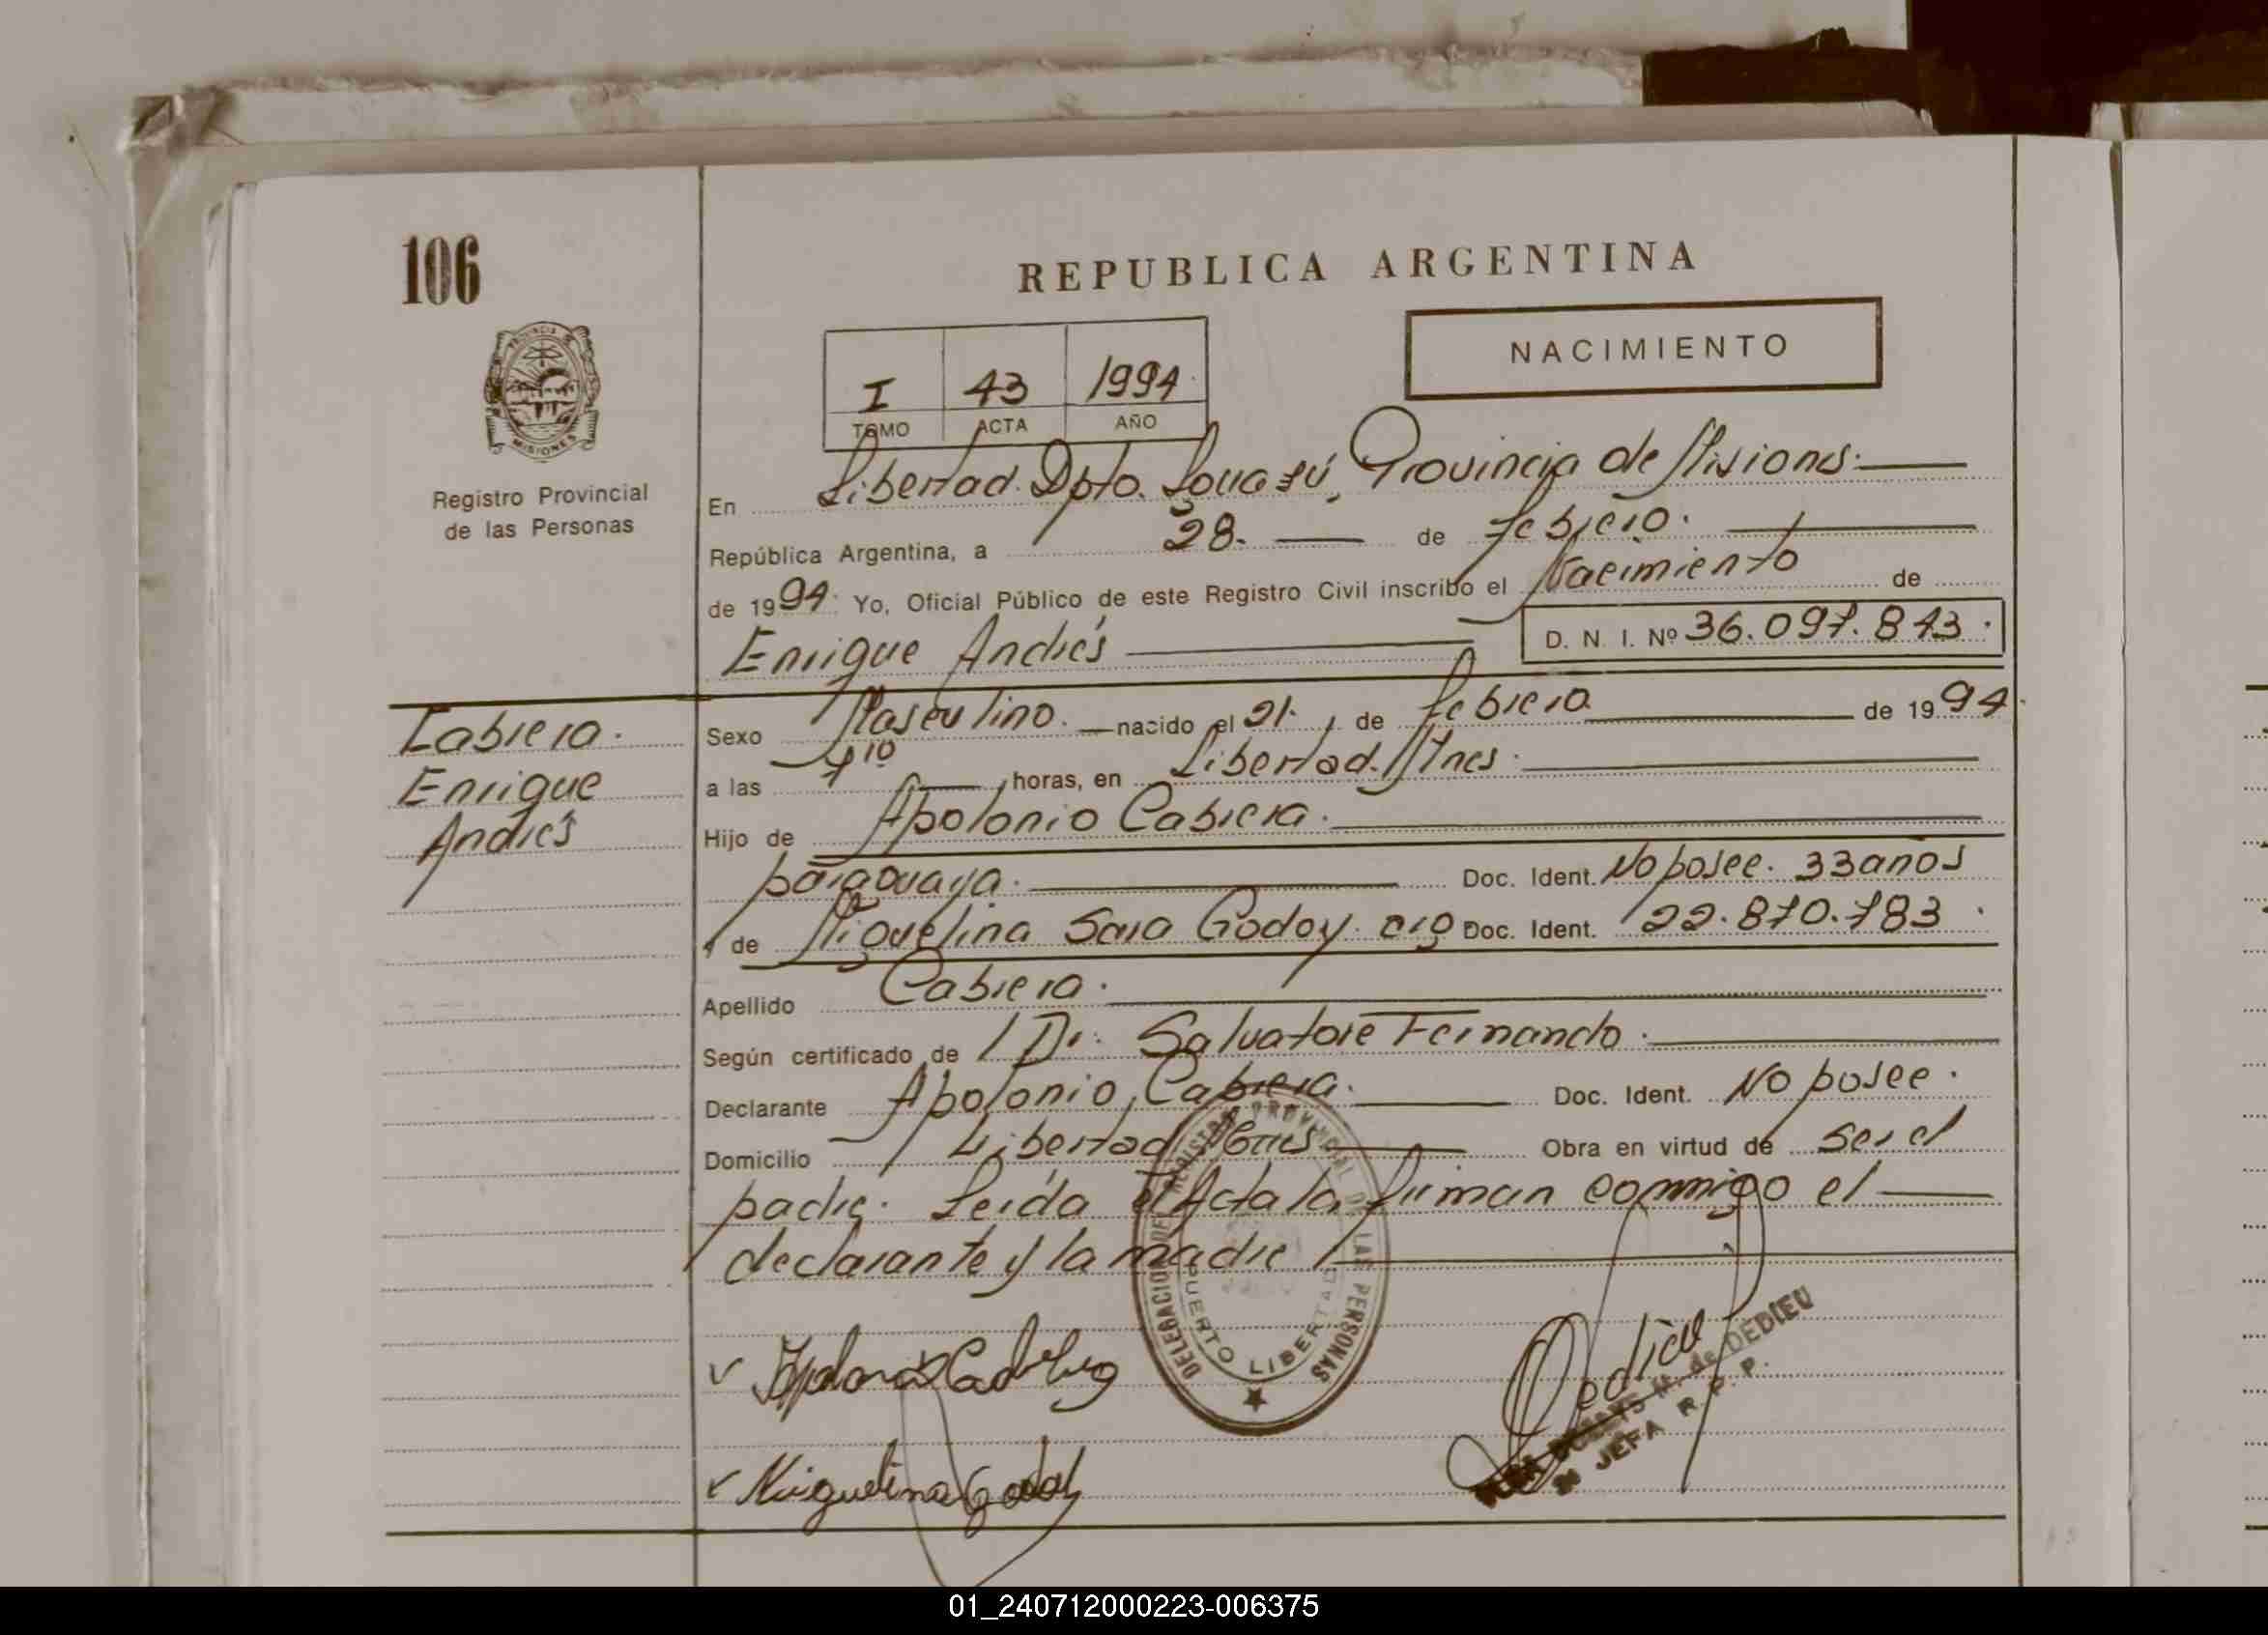 106
REPUBLICA ARGENTINA
NACIMIENTO
I 43 1994
TOMO ACTA AÑO
PROVINCIA DE
MISIONES
Registro Provincial
de las Personas
En Libertad. Dpto. Iguazú, Provincia de Misiones.
República Argentina, a 28. de febrero.
de 1994. Yo, Oficial Público de este Registro Civil inscribo el Nacimiento de
Enrique Andrés D. N. I. Nº 36.097.843.
Cabrera.
Enrique
Andrés
Sexo Masculino. nacido el 21. de febrero de 1994
a las 4 10 horas, en Libertad. Mnes.
Hijo de Apolonio Cabrera.
paraguaya. Doc. Ident. No posee. 33 años
y de Miguelina Sara Godoy. arg Doc. Ident. 22.870.783.
Apellido Cabrera.
Según certificado de Dr. Salvatore Fernando.
Declarante Apolonio Cabrera. Doc. Ident. No posee.
Domicilio Libertad Mnes Obra en virtud de ser el
padre. Leída el Acta la firman conmigo el
declarante y la madre
DELEGACION DEL REGISTRO PROVINCIAL DE LAS PERSONAS
PUERTO LIBERTAD
Miguelina Godoy
H. de DEDIEU
JEFA R. P. P.
01_240712000223-006375